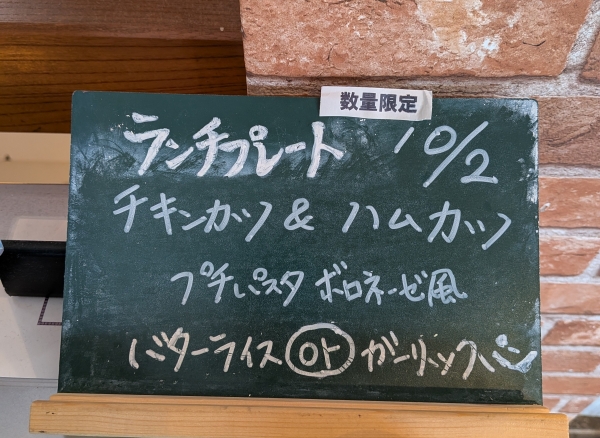 数量限定
ランチプレート 10/2
チキンカツ & ハムカツ
プチパスタ ボロネーゼ風
バターライス or ガーリックパン